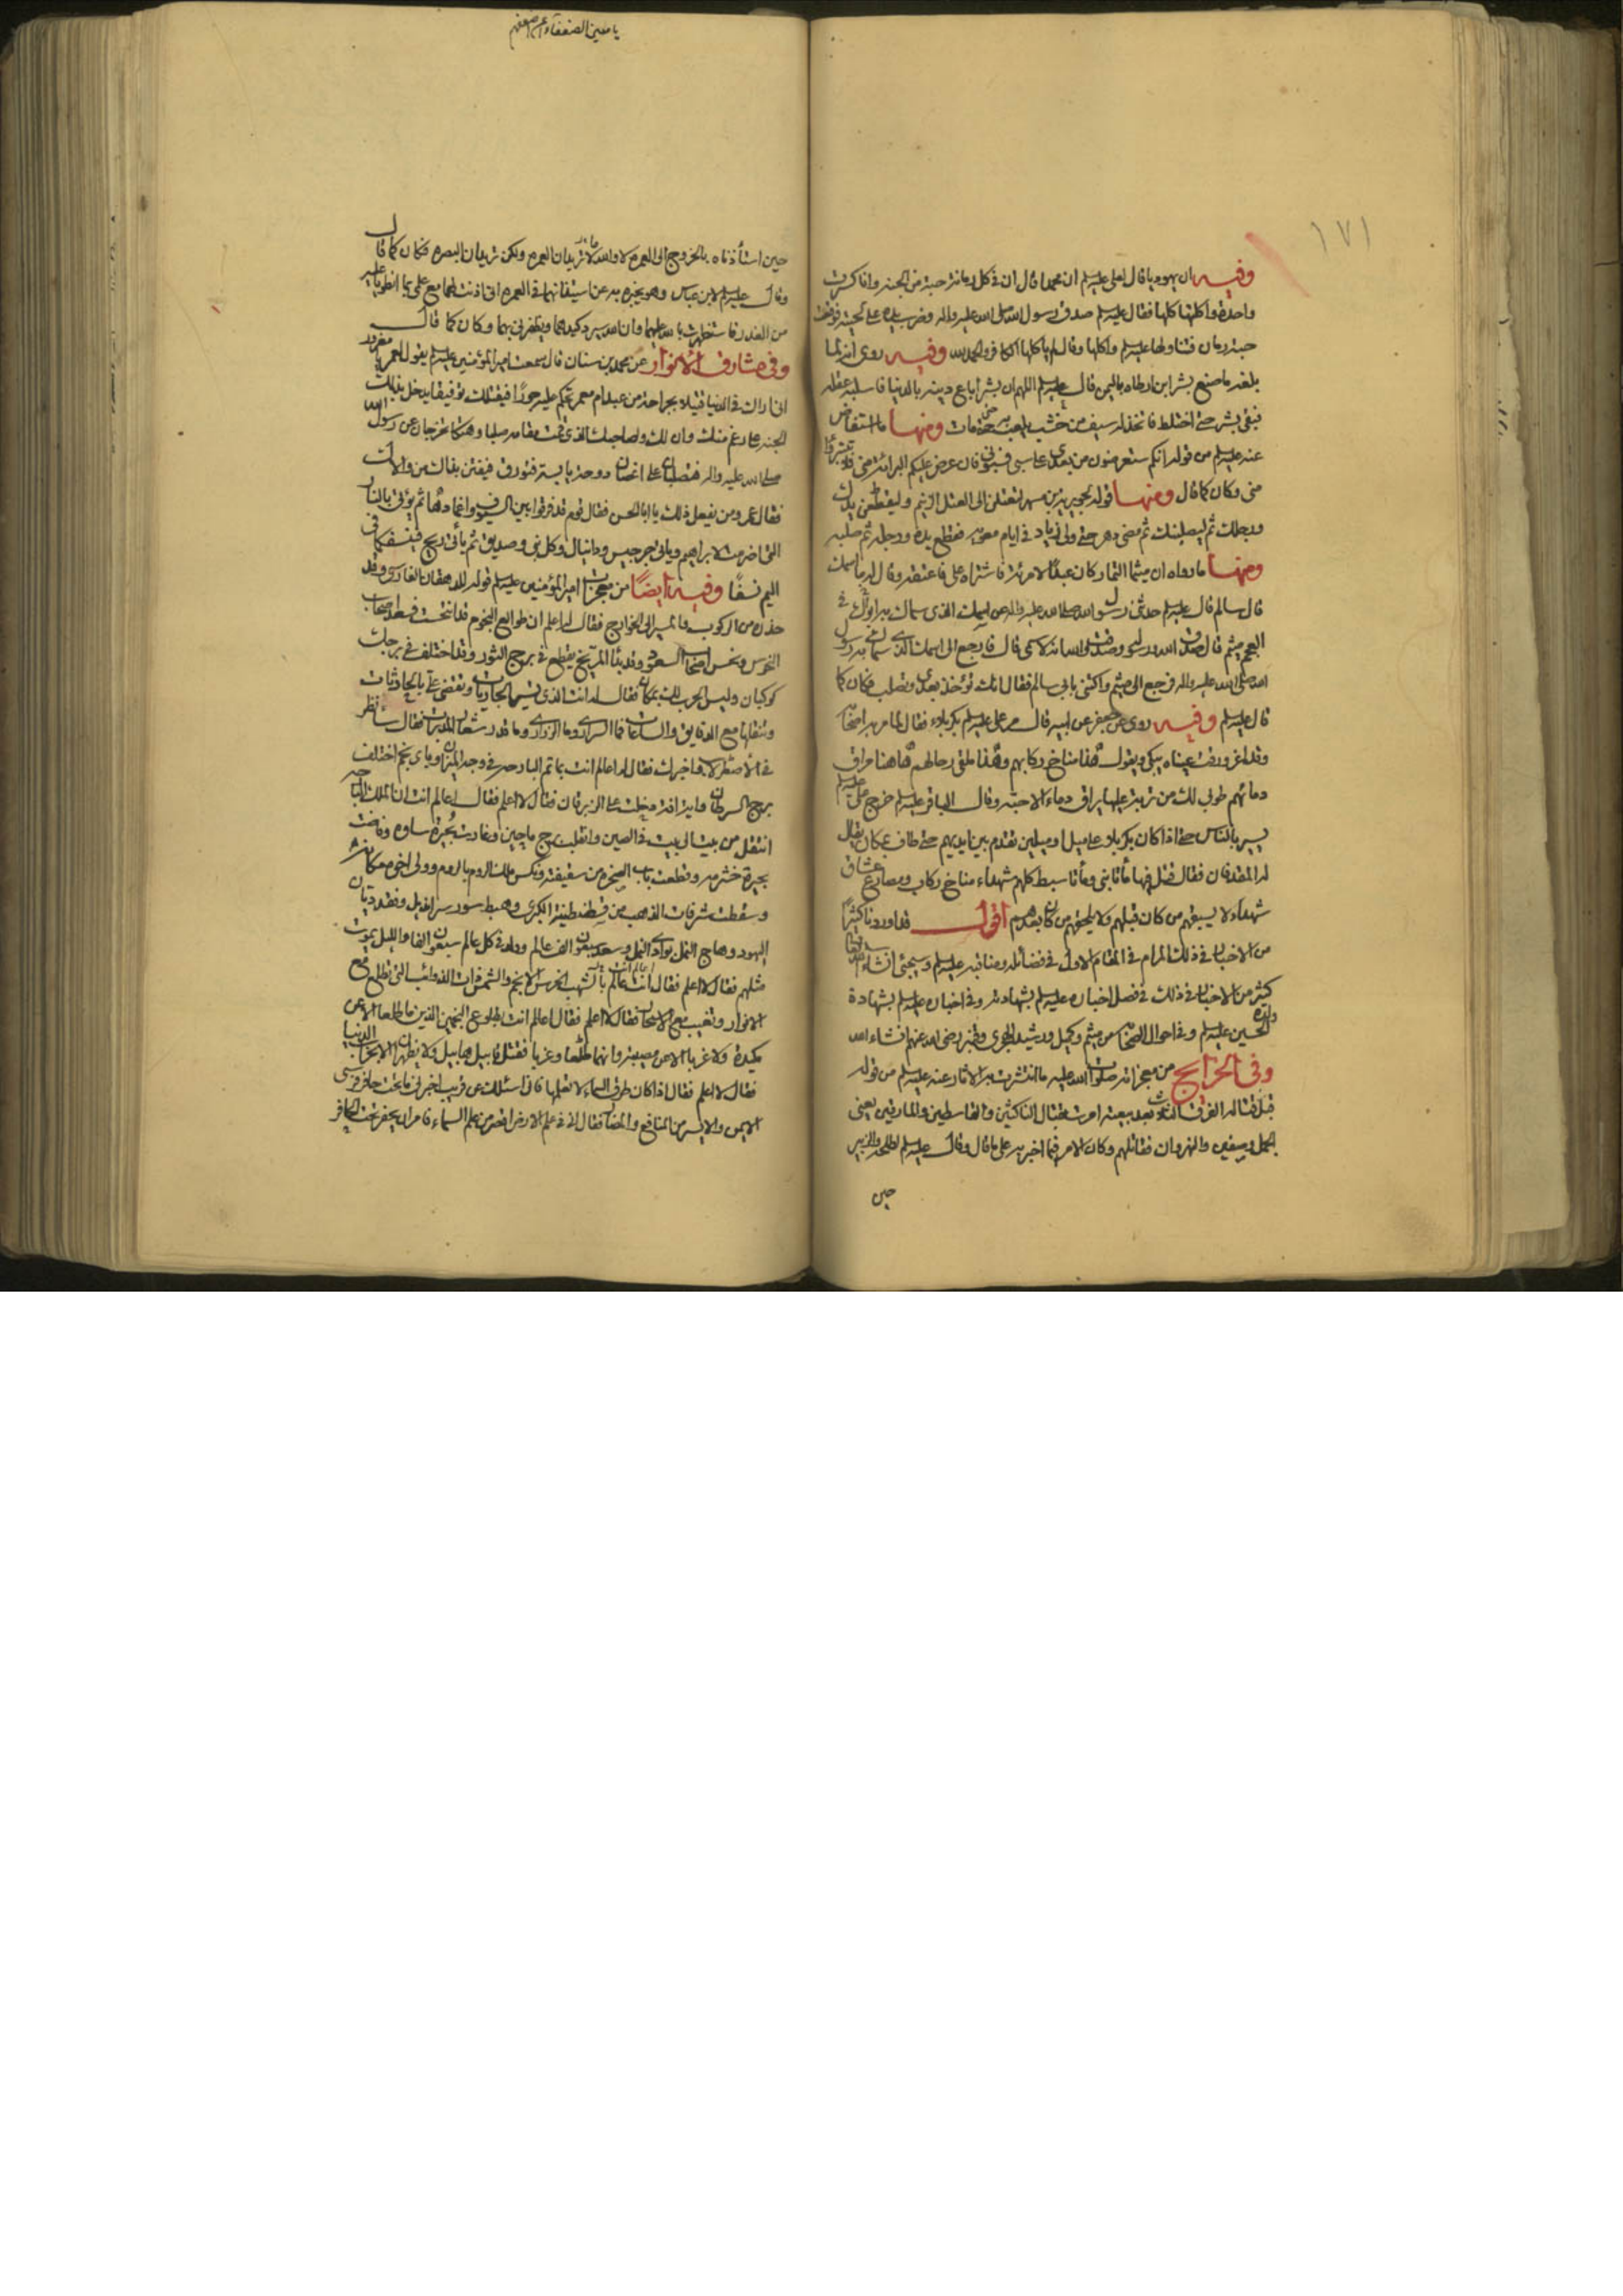 ١٧١
وفيه ان يهوديا قال لعلي عليه السلم ان محمدا قال ان في كل رمانة حبة من الجنة وانا كسرت
واحدة واكلتها كلها فقال عليه السلم صدق رسول الله صلى الله عليه واله وضرب يده على لحيته فوقعت
حبة رمان فتناولها عليه السلم واكلها وقال لم ياكلها الكافر والحمد لله وفيه روى انه لما
بلغه ما صنع بشر ابن ارطاه باليمن قال عليه السلم اللهم ان بشرا باع دينه بالدنيا فاسلبه عقله
فبقي بشر حتى اختلط فاتخذ له سيف من خشب يلعب به حتى مات ومنها ما استفاض
عنه عليه السلم من قوله انكم ستعرضون من بعدي على سبي فسبوني فان عرض عليكم البراءة مني فلا تتبرؤا
مني وكان كما قال ومنها قوله لجويرية بن مسهر لتعتلن الى العتل الزنيم وليقطعن يدك
ورجلك ثم ليصلبنك ثم مضى دهر حتى ولى زياد في ايام معوية فقطع يده ورجله ثم صلبه
ومنها ما رواه ان ميثما التمار كان عبدا لامرئة فاشتراه علي فاعتقه وقال له ما اسمك
قال سالم قال عليه السلم حدثني رسول الله صلى الله عليه واله عن اسمك الذي سماك به ابواك في
العجم ميثم قال صدق الله ورسوله وصدقت والله انه لاسمي قال فارجع الى اسمك الذي سماك به رسول
الله صلى الله عليه واله فرجع الى ميثم واكتنى بابي سالم فقال انك تؤخذ بعدي وتصلب فكان كما
قال عليه السلم وفيه روى عن جعفر عن ابيه قال مر علي عليه السلم بكربلاء فقال لما مر به اصحابه
وقد اغرورقت عيناه يبكي ويقول هذا مناخ ركابهم وهذا ملقى رحالهم هاهنا مراق
دمائهم طوبى لك من تربة عليها يراق دماء الاحبة وقال الباقر عليه السلم خرج علي عليه السلم
يسير بالناس حتى اذا كان بكربلاء على ميل او ميلين تقدم بين ايديهم حتى طاف بمكان يقال
له المقدفان فقال قتل فيها مأتا نبي ومأتا سبط كلهم شهداء مناخ ركاب ومصارع عشاق
شهداء لا يسبقهم من كان قبلهم ولا يلحقهم من كان بعدهم اقول قد اوردنا كثيرا
من الاخبار في ذلك المرام في المقام الاول في فضائله ومناقبه عليه السلم وسيجئ انشاء الله تعالى
كثير من الاخبار في ذلك في فصل اخباره عليه السلم بشهادته وفي اخباره عليه السلم بشهادة
ولده الحسين عليه السلم وفي احوال اصحابه من ميثم وكميل ورشيد الهجري وقنبر رضي الله عنهم انشاء الله
وفي الخرايج من معجزاته صلوات الله عليه ما انتشرت به الاثار عنه عليه السلم من قوله
قبل قتاله الفرق الثلاث بعد بيعته امرت بقتال الناكثين والقاسطين والمارقين يعني
الجمل وصفين والنهروان فقاتلهم وكان الامر فيما اخبر به على ما قال وقال عليه السلم لطلحة والزبير
حين
يا معين الضعفاء
حين استأذناه بالخروج الى العمرة لا والله ما تريدان العمرة ولكن تريدان البصرة فكان كما قال
وقال عليه السلم لابن عباس وهو يخبره به عن استيذانهما في العمرة اني اذنت لهما مع علمي بما انطويا عليه
من الغدر فاستظهرت بالله عليهما وان الله سيرد كيدهما ويظفرني بهما وكان كما قال
وفي مشارق الانوار عن محمد بن سنان قال سمعت امير المؤمنين عليه السلم يقول لعمر يا مغرور
اني اراك في الدنيا قتيلا بجراحة من عبد ام معمر تحكم عليه جورا فيقتلك توفيقا يدخل بذلك
الجنة على رغم منك وان لك ولصاحبك الذي قمت مقامه صلبا وهتكا تخرجان عن رسول الله
صلى الله عليه واله فتصلبان على اغصان دوحة يابسة فتورق فيفتتن بذلك من والاك
فقال عمر ومن يفعل ذلك يا ابا الحسن فقال قوم قد فرقوا بين السيوف واغمادها ثم يؤتى بالنار
التي اضرمت لابراهيم وياتي جرجيس ودانيال وكل نبي وصديق ثم يأتي ريح فينسفكما في
اليم نسفا وفيه ايضا من معجزات امير المؤمنين عليه السلم قوله للدهقان الفارسي وقد
حذره من الركوب والمسير الى الخوارج فقال له اعلم ان طوالع النجوم قد انتحست فسعد اصحاب
النحوس ونحس اصحاب السعود وقد بدأ المريخ يقطع في برج الثور وقد اختلف في برجك
كوكبان وليس الحرب لك بمكان فقال له انت الذي تسير الجاريات وتقضي علي بالحادثات
وتنقلها مع الدقايق والساعات فما السراري وما الزراري وما قدر شعاع المدبرات فقال سأنظر
في الاصطرلاب واخبرك فقال له اعالم انت بما تم البارحة في وجه الميزان وباي نجم اختلف
برج السرطان واية افة دخلت على الزبرقان فقال لا اعلم فقال اعالم انت ان الملك البارحة
انتقل من بيت الى بيت في الصين وانقلب برج ماچين وغارت بحيرة ساوه وفاضت
بحيرة خشرمه وقطعت باب الصخرة من سفينته ونكس ملك الروم بالروم وولى اخوه مكانه
وسقطت شرفات الذهب من قسطنطينية الكبرى وهبط سور سرانديل وفقد ديان
اليهود وهاج النمل بوادي النمل وسعد سبعون الف عالم وولد في كل عالم سبعون الفا والليل يموت
مثلهم فقال لا اعلم فقال اعالم انت بالشهب الخرس الانجم والشمس ذات الذوائب التي تطلع مع
الانوار وتغيب مع الاسحار فقال لا اعلم فقال اعالم انت بطلوع النجمين الذين ما طلعا الا عن
مكيدة ولا غربا الا عن مصيبة وانهما طلعا وغربا فقتل قابيل هابيل ولا يظهران الا بخراب الدنيا
فقال لا اعلم فقال اذا كان طرق السماء لا تعلمها فاني اسئلك عن قريب اخبرني ما تحت حافر فرسي
الايمن والايسر من المنافع والمضار فقال اني في علم الارض اقصر مني بعلم السماء فامر ان يحفر تحت الحافر